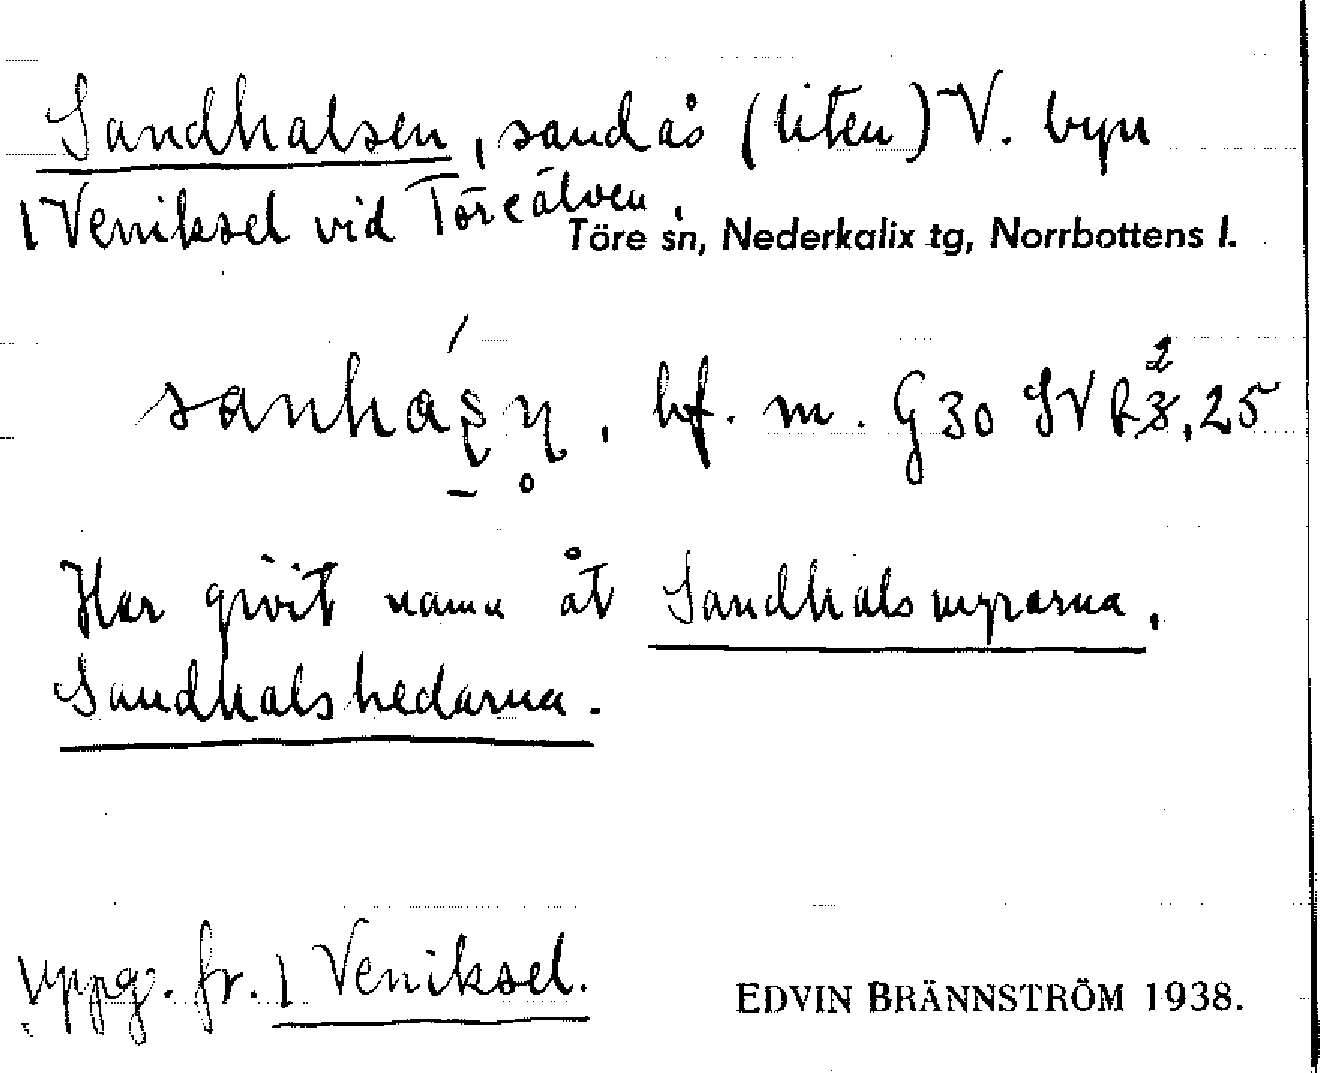 Sandhalsen, sandås (liten) V. byn
1 Veniksel vid Töreälven.
Töre sn, Nederkalix tg, Norrbottens l.
bf. m. G30 SV R2, 25
Har givit namn åt Sandhalsmyrarna,
Sandhalshedarna.
uppg. fr. 1 Veniksel.
EDVIN BRÄNNSTRÖM 1938.